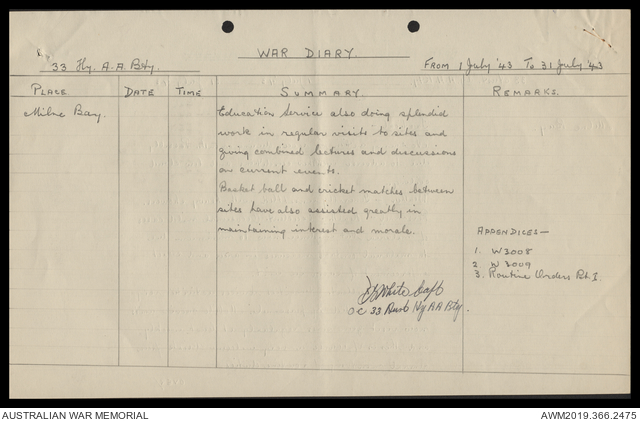 WAR DIARY.
33 Hy. A-A. Bty. FROM 1 July '43 To 31 July '43
PLACE DATE TIME SUMMARY REMARKS.
Milne Bay. Education Service also doing splendid
work in regular visits to sites and
giving combined lectures and discussions
on current events.
Basket ball and cricket matches between
sites have also assisted greatly in
maintaining interest and morale.
APPENDICES—
1. W3008
2. W3009
3. Routine Orders Pt. I.
White Capt
OC 33 Aust Hy AA Bty.
AUSTRALIAN WAR MEMORIAL AWM2019.366.2475